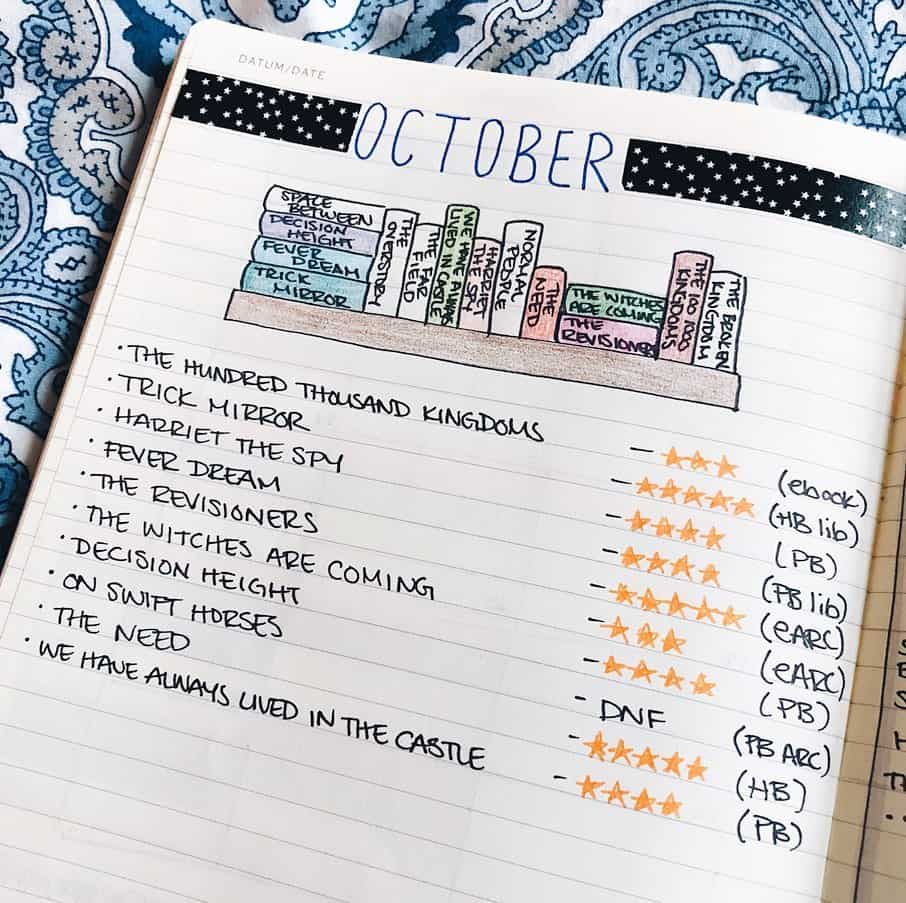 DATUM/DATE
OCTOBER
SPACE BETWEEN
DECISION HEIGHT
FEVER DREAM
TRICK MIRROR
THE OVERSTORY
THE FAR FIELD
WE HAVE ALWAYS LIVED IN CASTLE
HARRIET THE SPY
NORMAL PEOPLE
THE NEED
THE WITCHES ARE COMING
THE REVISIONERS
THE KINGDOMS
THE BROKEN KINGDOM
· THE HUNDRED THOUSAND KINGDOMS - ★★★ (ebook)
· TRICK MIRROR - ★★★★★ (HB lib)
· HARRIET THE SPY - ★★★★ (PB)
· FEVER DREAM - ★★★★ (PB lib)
· THE REVISIONERS - ★★★★★ (eARC)
· THE WITCHES ARE COMING - ★★★ (eARC)
· DECISION HEIGHT - ★★★★ (PB)
· ON SWIFT HORSES - DNF (PB ARC)
· THE NEED - ★★★★★ (HB)
· WE HAVE ALWAYS LIVED IN THE CASTLE - ★★★★ (PB)